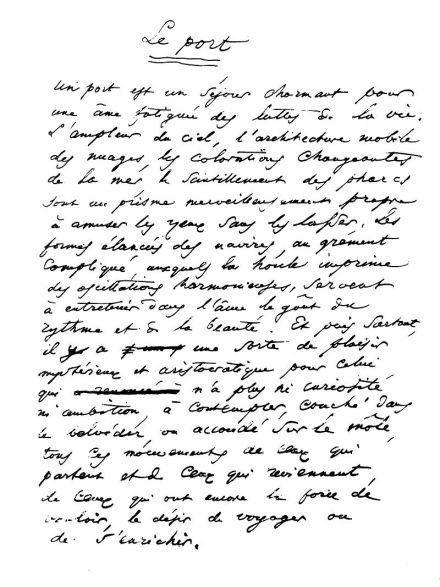 Le port
Un port est un séjour charmant pour
une âme fatiguée des luttes de la vie.
L'ampleur du ciel, l'architecture mobile
des nuages, les colorations changeantes
de la mer, le scintillement des phares
sont un prisme merveilleusement propre
à amuser les yeux sans les lasser. Les
formes élancées des navires, au gréement
compliqué, auxquels la houle imprime
des oscillations harmonieuses, servent
à entretenir dans l'âme le goût du
rythme et de la beauté. Et puis, surtout,
il y a une sorte de plaisir
mystérieux et aristocratique pour celui
qui n'a plus ni curiosité,
ni ambition, à contempler, couché dans
le belvédère ou accoudé sur le môle,
tous ces mouvements de ceux qui
partent et de ceux qui reviennent,
de ceux qui ont encore la force de
vouloir, le désir de voyager ou
de s'enrichir.